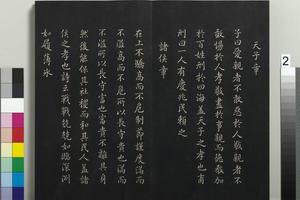 天子章
子曰愛親者不敢惡於人敬親者不
敢慢於人愛敬盡於事親而德教加
於百姓刑於四海蓋天子之孝也甫
刑曰一人有慶兆民賴之
諸侯章
在上不驕高而不危制節謹度滿而
不溢高而不危所以長守貴也滿而
不溢所以長守富也富貴不離其身
然後能保其社稷而和其民人蓋諸
侯之孝也詩云戰戰兢兢如臨深淵
如履薄冰
2